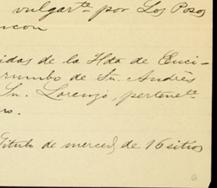 vulgarte por Los Posos
ncon
idas de la Hda de Enci-
rumbo de Sn. Andrés
Sn. Lorenzo, pertenete
ro.
titulo de merced, de 16 sitios